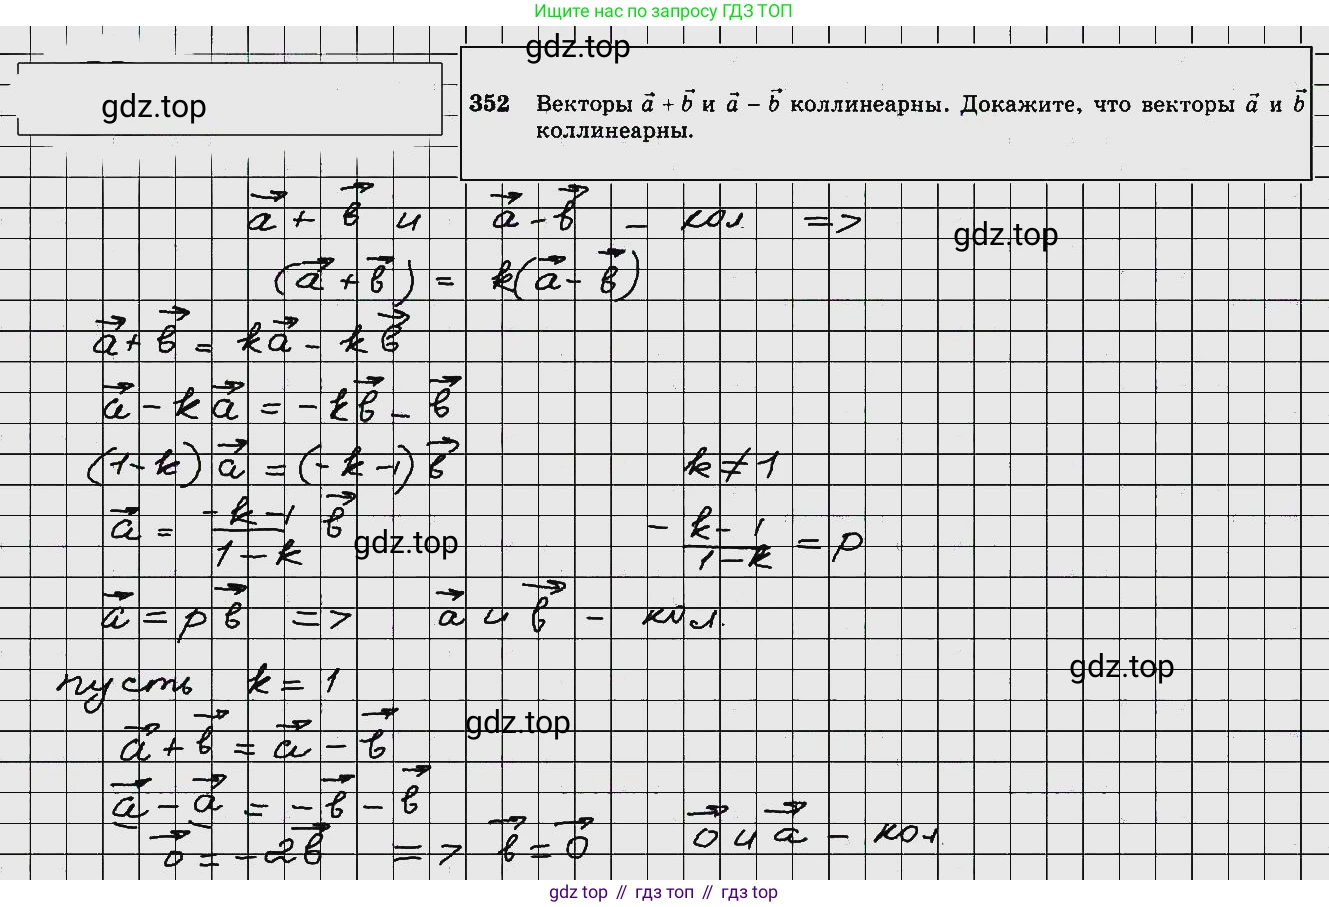 Ищите нас по запросу ГДЗ ТОП
gdz.top
gdz.top
352 Векторы a⃗ + b⃗ и a⃗ – b⃗ коллинеарны. Докажите, что векторы a⃗ и b⃗
коллинеарны.
a⃗ + b⃗ и a⃗ - b⃗ - кол. =>
gdz.top
(a⃗ + b⃗) = k(a⃗ - b⃗)
a⃗ + b⃗ = ka⃗ - kb⃗
a⃗ - ka⃗ = -kb⃗ - b⃗
(1-k)a⃗ = (-k-1)b⃗ k ≠ 1
a⃗ = (-k-1)/(1-k) b⃗ -(k-1)/(1-k) = p
gdz.top
a⃗ = pb⃗ => a⃗ и b⃗ - кол.
gdz.top
пусть k = 1
gdz.top
a⃗ + b⃗ = a⃗ - b⃗
a⃗ - a⃗ = -b⃗ - b⃗
0⃗ = -2b⃗ => b⃗ = 0⃗ 0⃗ и a⃗ - кол
gdz top // гдз топ // гдз top